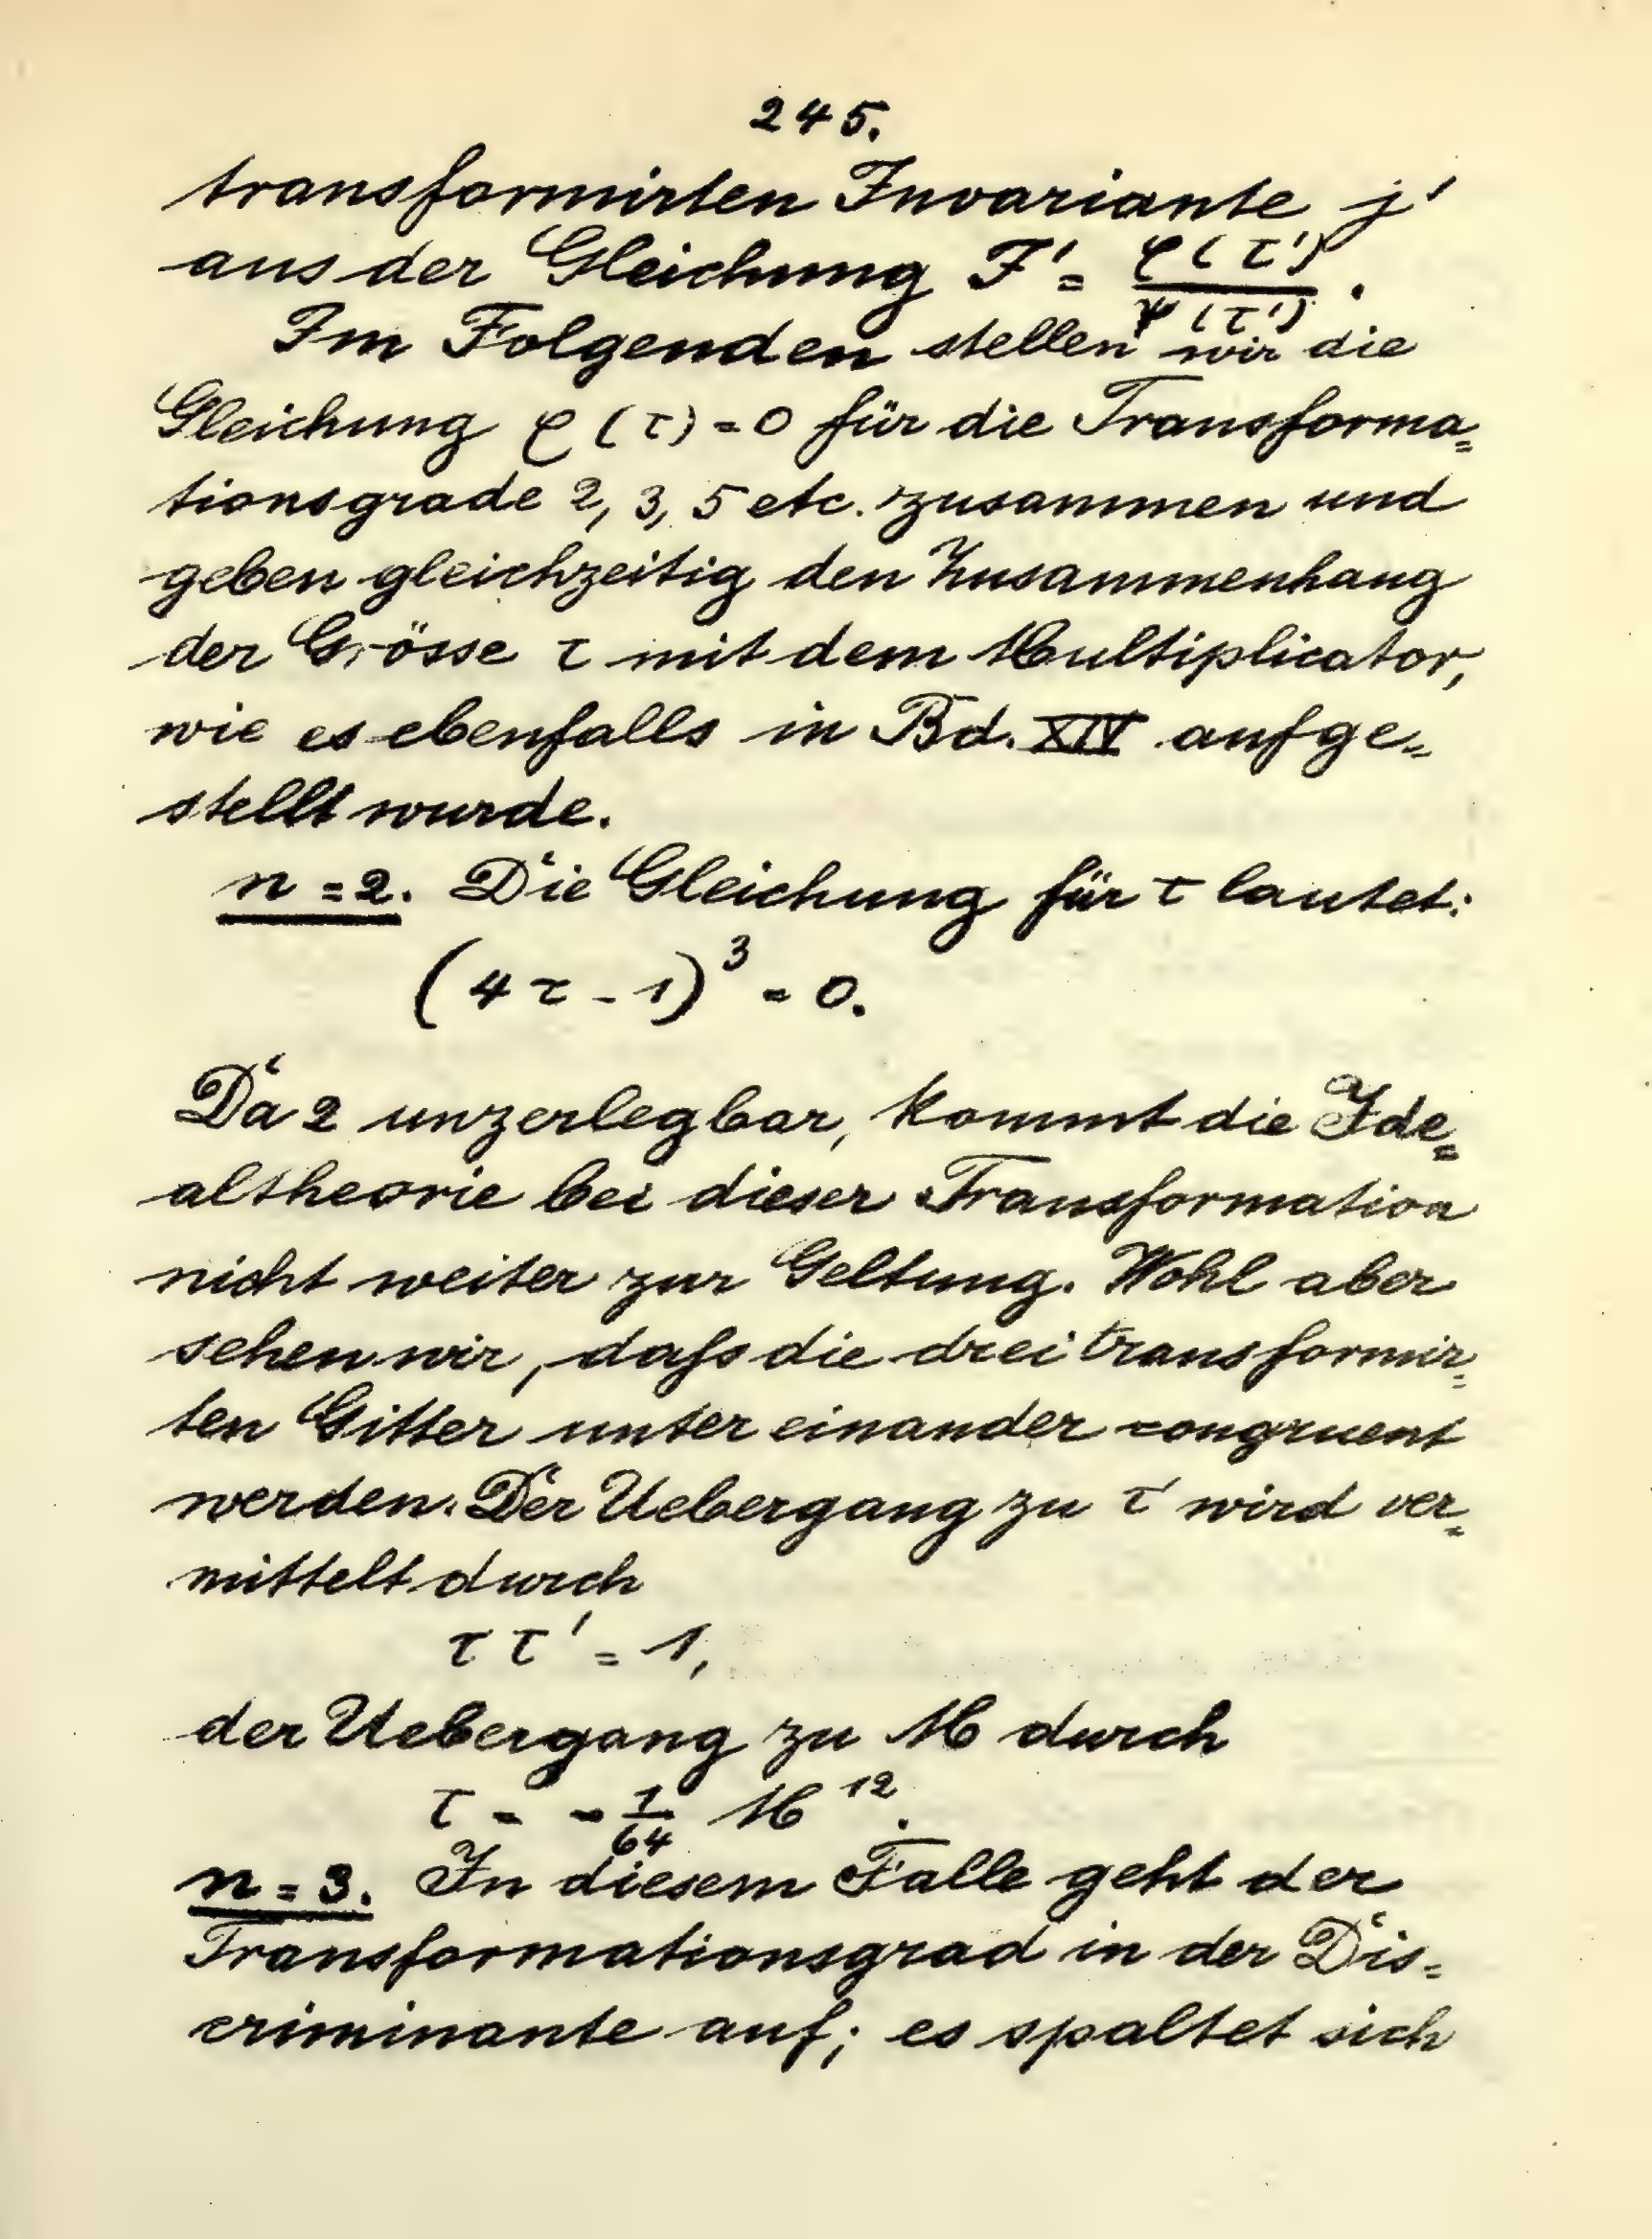 245.
transformirten Invariante j'
aus der Gleichung J' = φ(τ')/ψ(τ').
Im Folgenden stellen wir die
Gleichung φ(τ) = 0 für die Transforma=
tionsgrade 2, 3, 5 etc. zusammen und
geben gleichzeitig den Zusammenhang
der Grösse τ mit dem Multiplicator,
wie es ebenfalls in Bd. XIV aufge=
stellt wurde.
n = 2. Die Gleichung für τ lautet:
(4τ - 1)³ = 0.
Da 2 unzerlegbar, kommt die Ide=
altheorie bei dieser Transformation
nicht weiter zur Geltung. Wohl aber
sehen wir, dafs die drei transformir=
ten Gitter unter einander congruent
werden. Der Uebergang zu τ' wird ver=
mittelt durch
τ τ' = 1,
der Uebergang zu M durch
τ = - 1/64 M¹².
n = 3. In diesem Falle geht der
Transformationsgrad in der Dis=
criminante auf; es spaltet sich